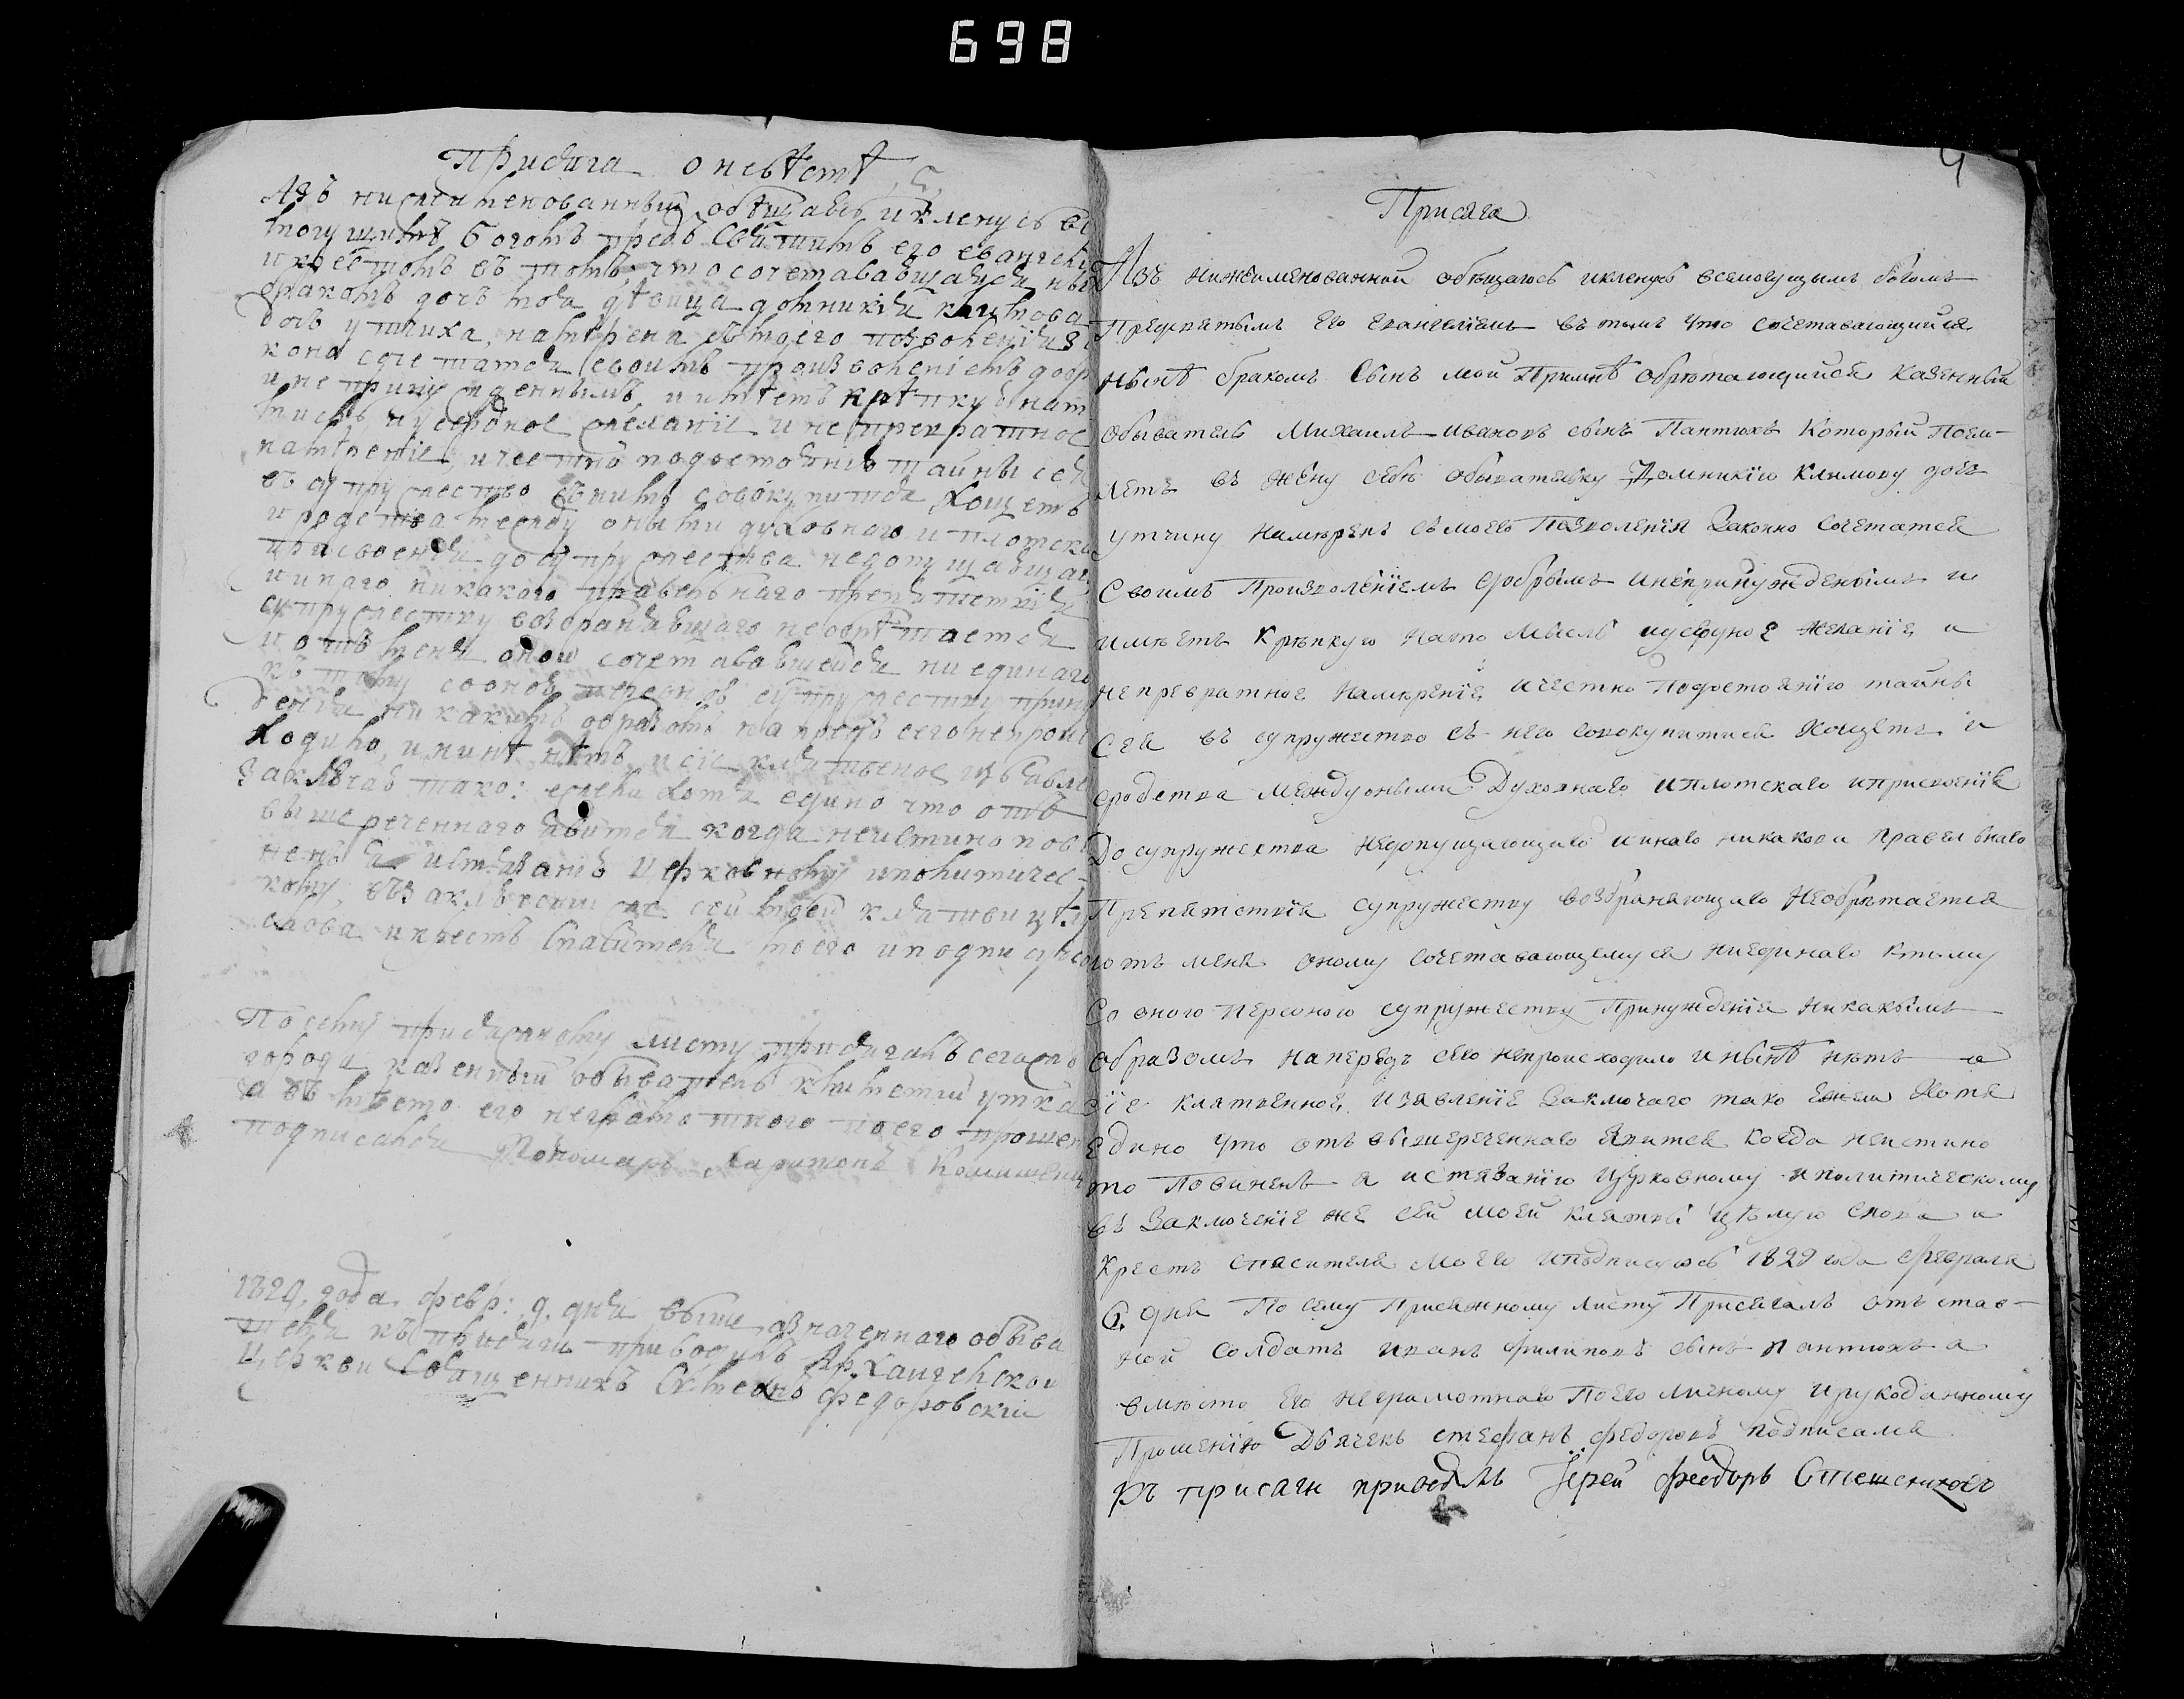 698
Присяга о невѣстѣ
Азъ нижеименованный обѣщаюсь и кленусь все
могущимъ Богомъ предъ Святымъ его евангелі
и крестомъ въ томъ, что сочетавающаяся нынѣ
бракомъ дочь моя дѣвица домникія климова
дочь утчиха, намѣрена съ моего позволенія за
конно сочетатся своимъ произволеніемъ добр
и не принужденнымъ, и имѣетъ крѣпкую на то
мысль, и усердное желаніе и не превратное
намѣреніе, и честно по достоянію тайны сея
въ супружество съ нимъ совокупитися хощетъ
и родства между оными духовнаго и плотска
присвоенія до супружества недопущающаго
и инаго никакого правельнаго препятствія
супружеству возбраняющаго не обрѣтается
и отъ меня оной сочетавающейся ни единаго
къ тому со оною персоною супружеству прину
денія никакимъ образомъ на предъ сего не проис
ходило, и нинѣ нѣтъ и сіе клятвенное изъявле
заключаю тако: ежели хотя едино что отъ
вышереченнаго явится когда неистинно пови
ненъ я истязанію Церковному и политичес-
кому, въ заключеніи же сей моей клятви цѣлую
слова и крестъ Спасителя моего и подписуюсь
По сему присяжному листу присягалъ сегожъ
города казенный обыватель климентий утка
а въ мѣсто его неграмотного по его прошен
подписался Пономарь Харитонъ
1829, года. февр: 9. дня выше означеннаго обыва
теля къ присяги приводилъ Архангельской
Церкви Священникъ федоровский
4
Присяга
Азъ нижеименованной обѣщаюсь икленусь всемогущымъ богомъ
Предсвятымъ Его Евангелiемъ въ томъ Что сочетавающийся
нынѣ бракомъ Сынъ мой Примнѣ обрѣтающийся Казенный
обыватель Михаилъ Ивановъ сынъ Пантюхъ Который Поем-
летъ въ жену себѣ обывателку Домникiю Климову дочь
утчину Намѣренъ съ моего Позволенiя Законно Сочетатся
Своимъ Произволенiемъ добрымъ инепринужденымъ и
имѣетъ Крѣпкую нато Мысль иусердное желанiе и
непревратное Намѣренiе ичестно Подостоянiю тайны
Сея въ супружество съ нею совокупится Хощетъ и
сродства между оными Духовнаго иплотскаго иприсвоенiя
До супружества недопущающаго иинаго никакова правельнаго
Препятствiя супружеству возбраняющаго Необрѣтается
иотъ меня оному Сочетавающемуся ниединаго Ктому
Со оною персоною супружеству Принужденiя Никакымъ
образомъ напередъ сего непроисходило инынѣ нѣтъ и
сiе клятвенное Изявленiе Заключаю тако Ежели Хотя
Едино Что отъ вышереченнаго Явится Когда неистино
то Повиненъ я истязанiю Церковному иполитическому
въ Заключенiе же сей моей клятвы Цѣлую слова и
Крестъ Спасителя Моего иподписуюсь 1829 года Февраля
6. дня По сему Присяжному листу Присягалъ отъ став-
ной солдатъ иванъ филиповъ сынъ пантюхъ а
вмѣсто Его неграмотнаго Поего личному ирукоданному
Прошенiю Дьячекъ стефанъ федоровъ подписался
Къ присяги приводилъ Iерей Феодоръ